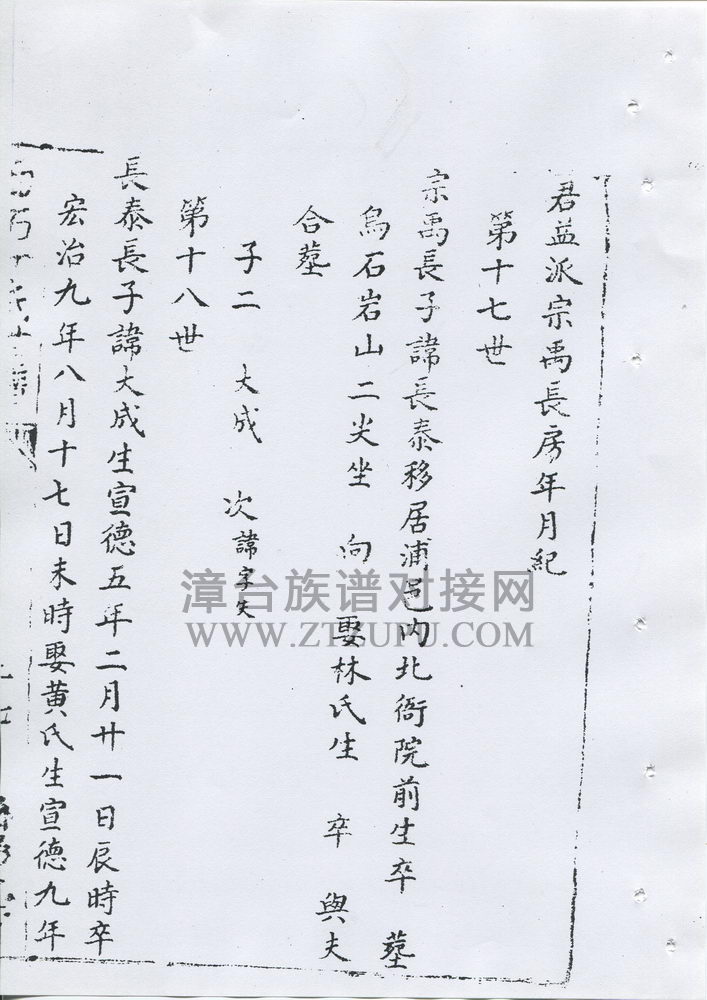 君益派宗禹長房年月紀
第十七世
宗禹長子諱長泰移居浦邑内北衙院前生卒 墓
烏石岩山二尖坐 向 娶林氏生 卒 與夫
合墓
子二 大成 次諱字失
第十八世
長泰長子諱大成生宣德五年二月廿一日辰時卒
宏治九年八月十七日未時娶黃氏生宣德九年
漳台族谱对接网
WWW.ZTZUPU.COM